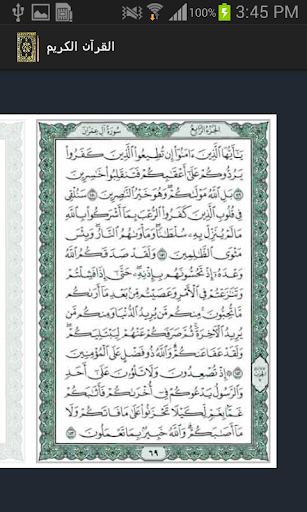 3:45 PM
100%
القرآن الكريم
سُورَةُ آلِ عِمْرَان
الجُزْءُ الرَّابِعُ
يَٰٓأَيُّهَا ٱلَّذِينَ ءَامَنُوٓا۟ إِن تُطِيعُوا۟ ٱلَّذِينَ كَفَرُوا۟
يَرُدُّوكُمْ عَلَىٰٓ أَعْقَٰبِكُمْ فَتَنقَلِبُوا۟ خَٰسِرِينَ
١٤٩ بَلِ ٱللَّهُ مَوْلَىٰكُمْ وَهُوَ خَيْرُ ٱلنَّٰصِرِينَ ١٥٠ سَنُلْقِى
فِى قُلُوبِ ٱلَّذِينَ كَفَرُوا۟ ٱلرُّعْبَ بِمَآ أَشْرَكُوا۟ بِٱللَّهِ
مَا لَمْ يُنَزِّلْ بِهِۦ سُلْطَٰنًا وَمَأْوَىٰهُمُ ٱلنَّارُ وَبِئْسَ
مَثْوَى ٱلظَّٰلِمِينَ ١٥١ وَلَقَدْ صَدَقَكُمُ ٱللَّهُ
وَعْدَهُۥٓ إِذْ تَحُسُّونَهُم بِإِذْنِهِۦ حَتَّىٰٓ إِذَا فَشِلْتُمْ
وَتَنَٰزَعْتُمْ فِى ٱلْأَمْرِ وَعَصَيْتُم مِّنۢ بَعْدِ مَآ أَرَىٰكُم
مَّا تُحِبُّونَ مِنكُم مَّن يُرِيدُ ٱلدُّنْيَا وَمِنكُم مَّن
يُرِيدُ ٱلْءَاخِرَةَ ثُمَّ صَرَفَكُمْ عَنْهُمْ لِيَبْتَلِيَكُمْ
وَلَقَدْ عَفَا عَنكُمْ وَٱللَّهُ ذُو فَضْلٍ عَلَى ٱلْمُؤْمِنِينَ
١٥٢ إِذْ تُصْعِدُونَ وَلَا تَلْوُۥنَ عَلَىٰٓ أَحَدٍ
وَٱلرَّسُولُ يَدْعُوكُمْ فِىٓ أُخْرَىٰكُمْ فَأَثَٰبَكُمْ
غَمًّۢا بِغَمٍّ لِّكَيْلَا تَحْزَنُوا۟ عَلَىٰ مَا فَاتَكُمْ وَلَا
مَآ أَصَٰبَكُمْ وَٱللَّهُ خَبِيرٌۢ بِمَا تَعْمَلُونَ ١٥٣
٦٩